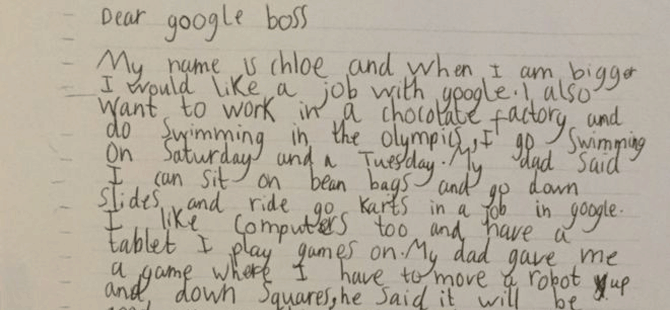 Dear google boss
My name is chloe and when I am bigger
I would like a job with google. I also
want to work in a chocolate factory and
do swimming in the olympics, I go swimming
on Saturday and a Tuesday. My dad said
I can sit on bean bags and go down
slides and ride go karts in a job in google.
I like computers too and have a
tablet I play games on. My dad gave me
a game where I have to move a robot up
and down squares, he said it will be